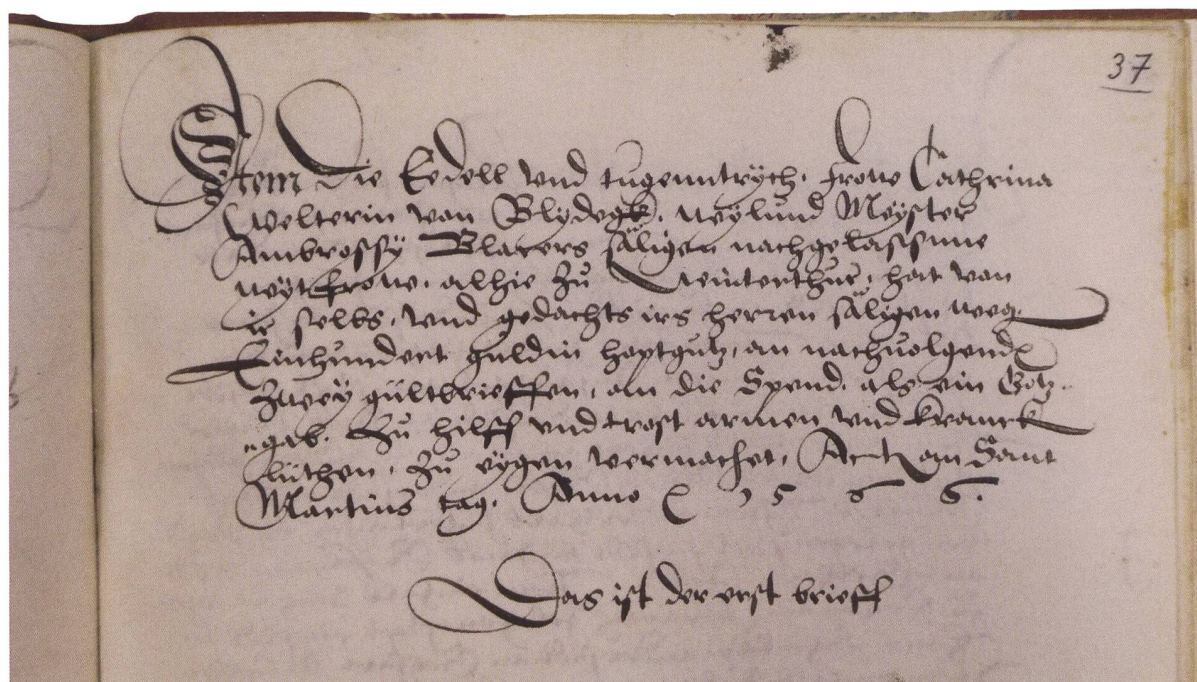 37
Item Die Eedell und tugenntrych, frow Cathrina
Welterin von Blydegk, weylund Meyster
Ambrossy Blarers säligen nachgelassnne
weytfrow, alhie zů Winterthur, hat von
ir selbs, und gedachts irs herren säligen weg,
Einhundert guldin hoptgutz, an nachvolgend
zwey gültbrieffen, an die Spend, als ein Gotz-
gab, Zů hilff und trost armen und kranck
lüthen, zů eygen vermachet, Act. am Sant
Martins tag, Anno 1566.
Das ist der erst brieff